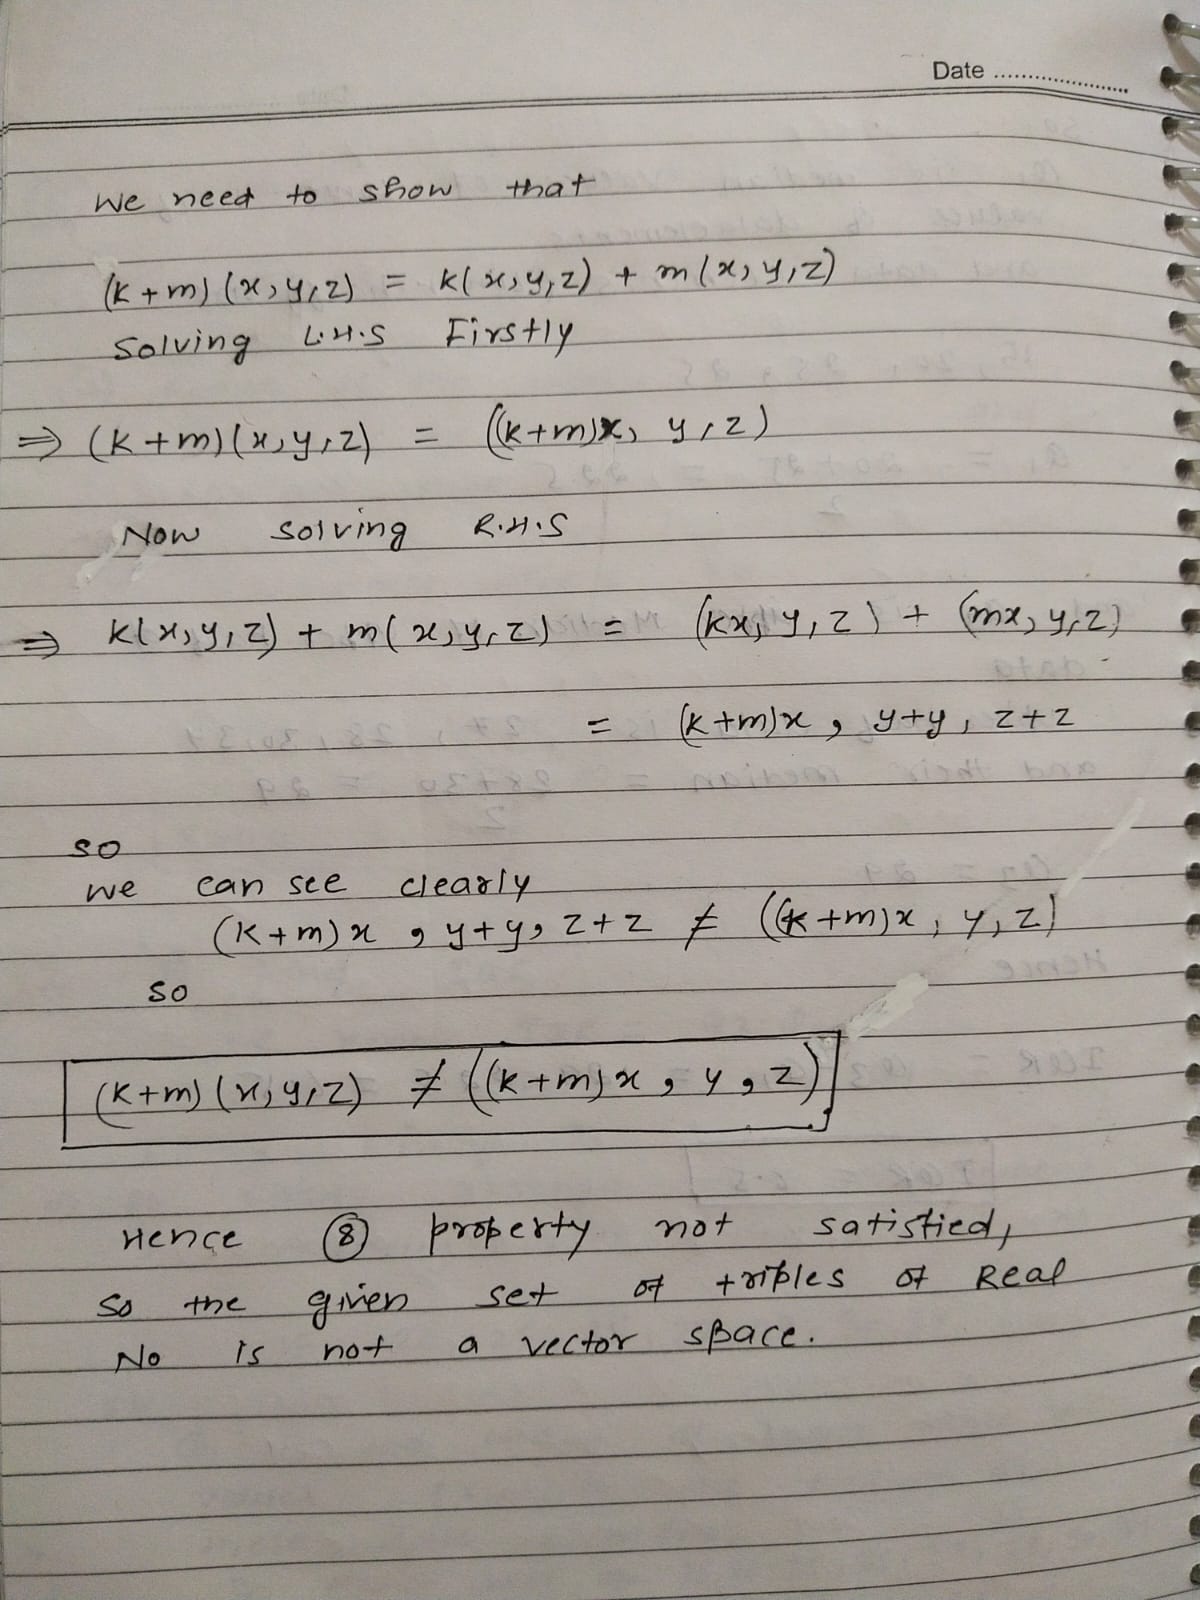 Date ........................
We need to show that
(k+m)(x,y,z) = k(x,y,z) + m(x,y,z)
Solving L.H.S Firstly
⇒ (k+m)(x,y,z) = ((k+m)x, y,z)
Now solving R.H.S
⇒ k(x,y,z) + m(x,y,z) = (kx, y,z) + (mx, y,z)
= (k+m)x, y+y, z+z
so
we can see clearly
(k+m)x, y+y, z+z ≠ ((k+m)x, y, z)
so
(k+m)(x,y,z) ≠ ((k+m)x, y, z)
Hence ⑧ property not satisfied,
so the given set of triples of Real
No is not a vector space.